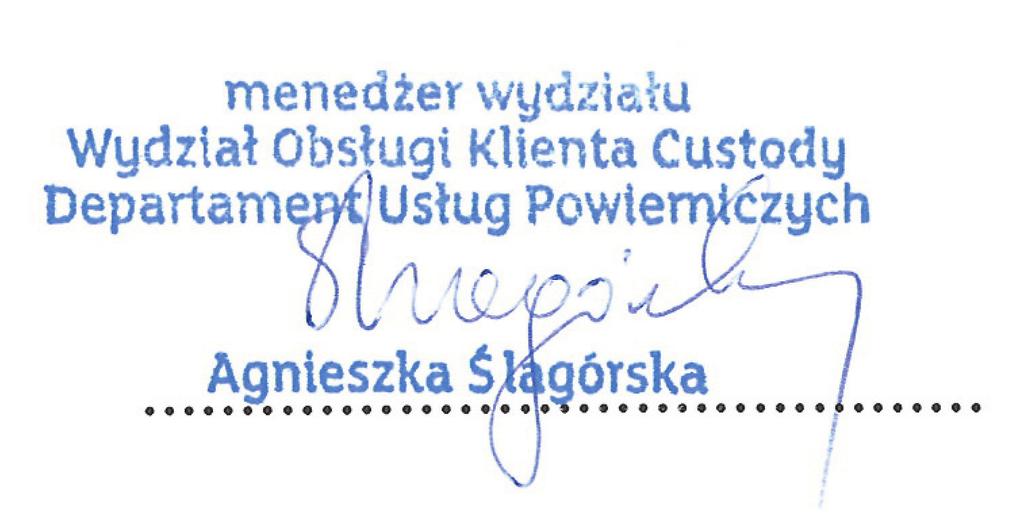 menedżer wydziału
Wydział Obsługi Klienta Custody
Departament Usług Powierniczych
Agnieszka Ślagórska